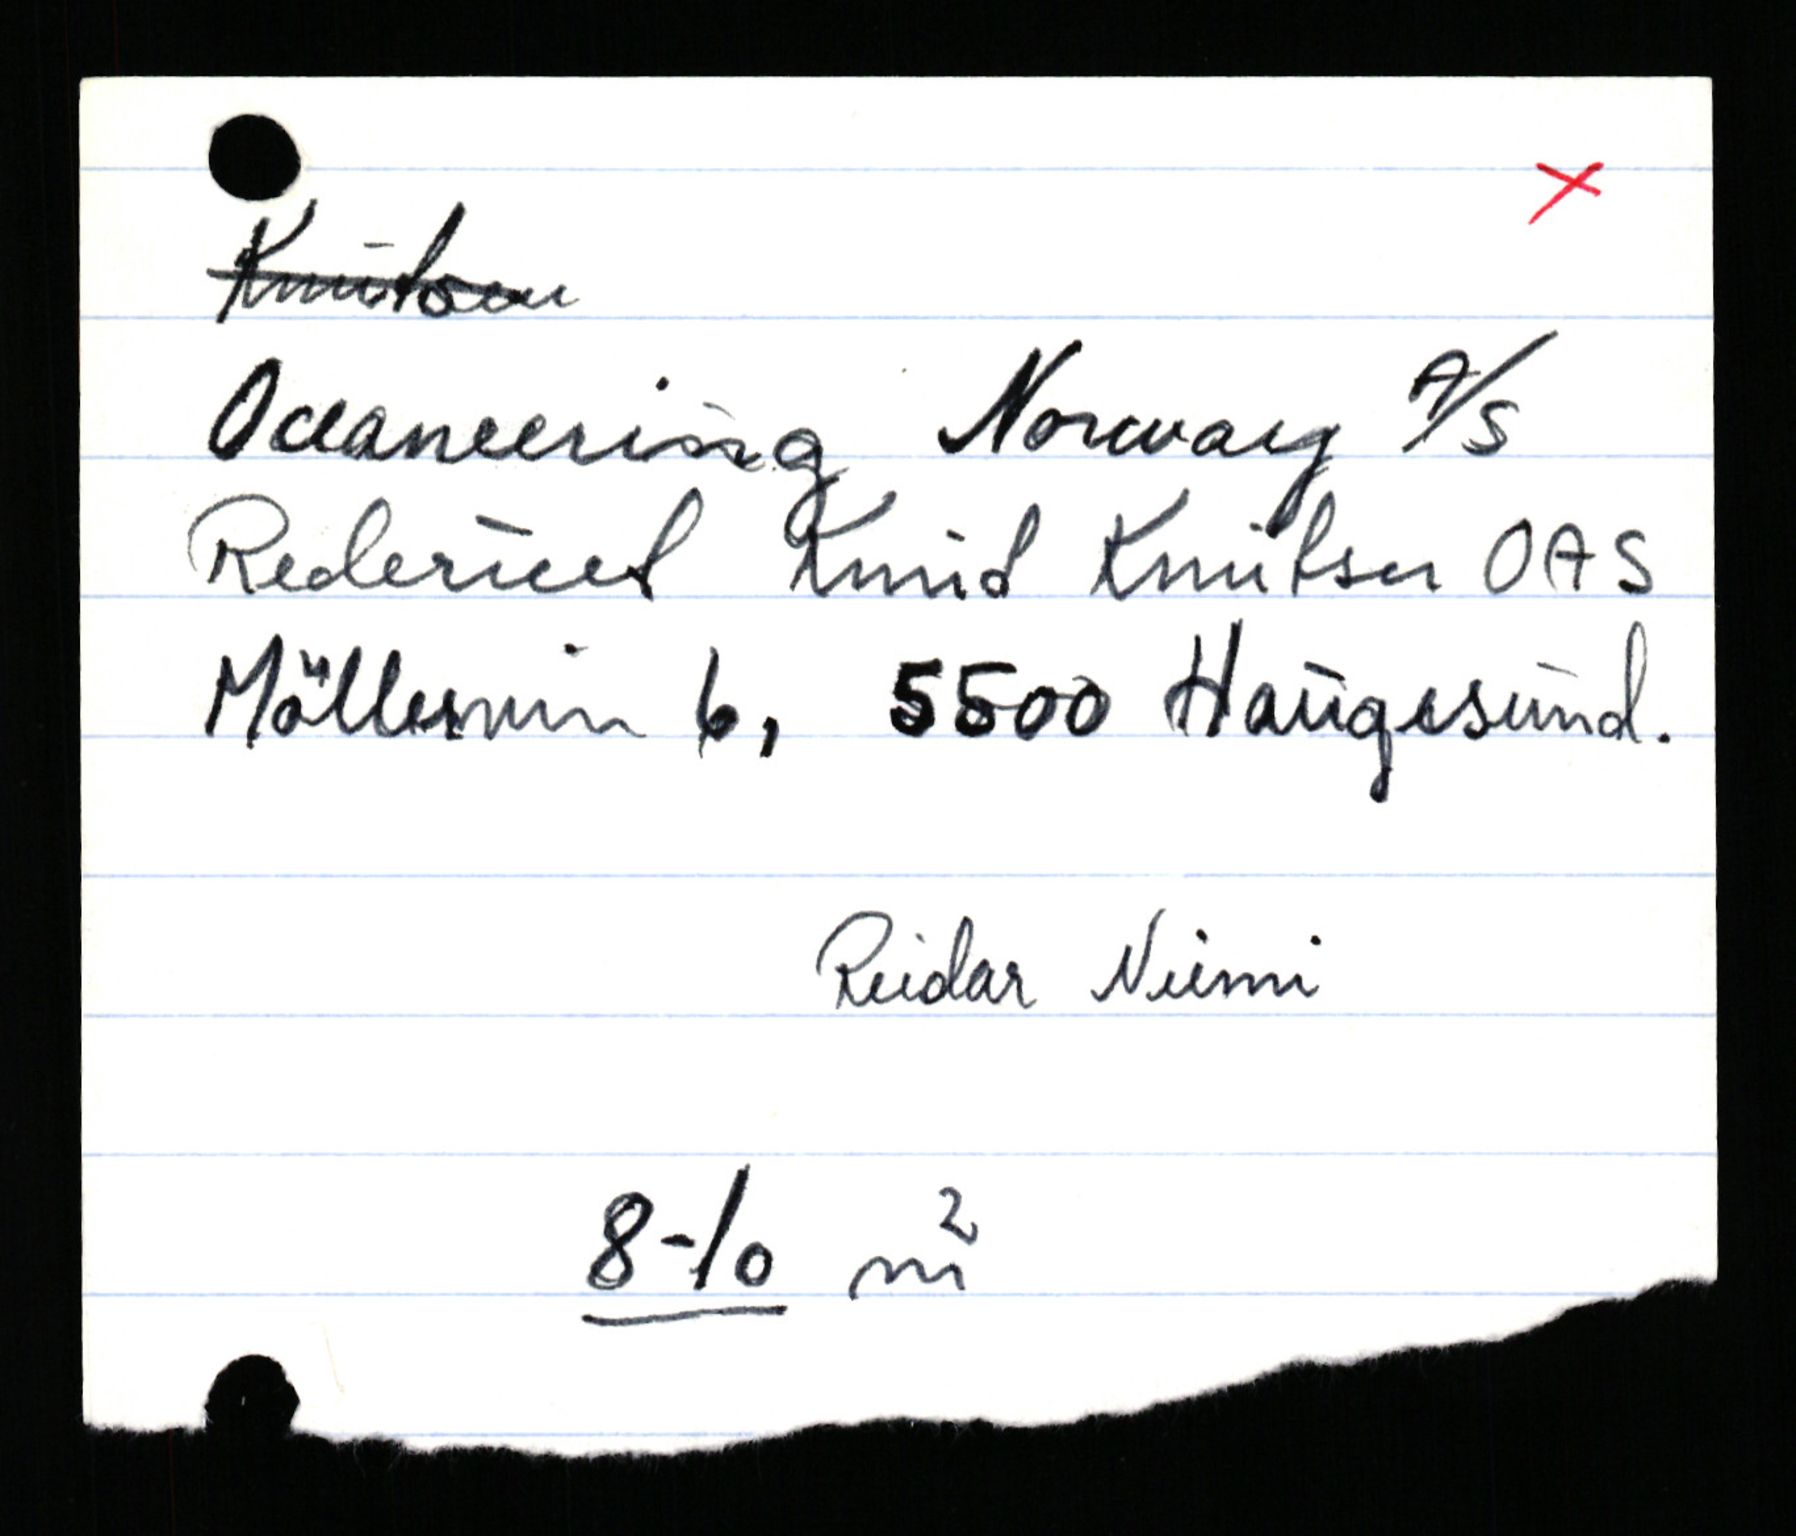 Oceaneering Norway A/S
Rederiet Knut Knutsen OAS
5500 Haugesund.
Reidar Niemi
8-10 m²